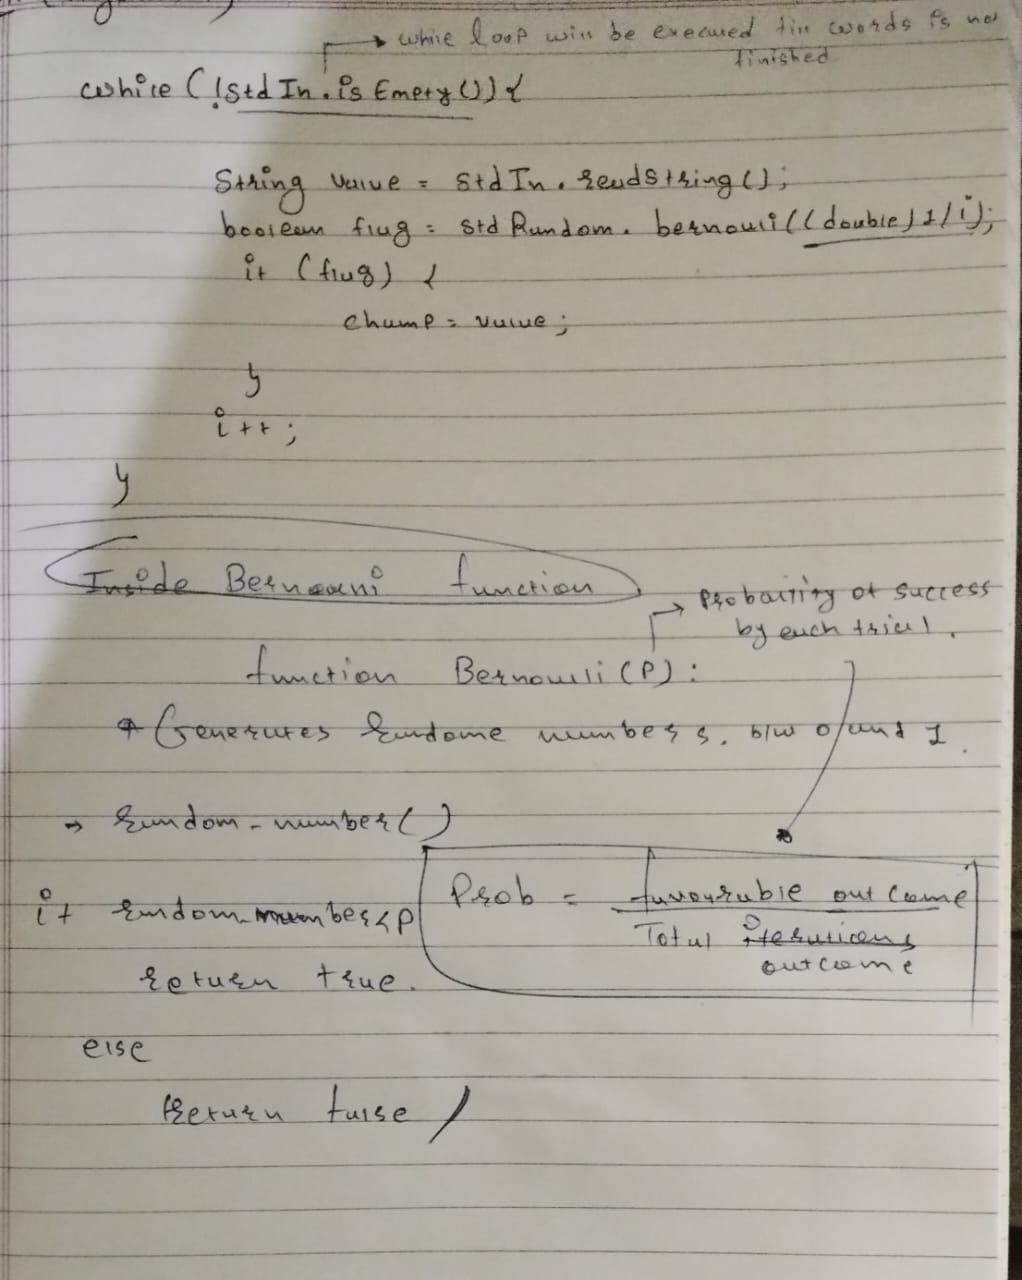 while loop will be execured till words is not
finished
while (!StdIn.isEmpty()){
String value = StdIn.readString();
boolean flag = StdRandom.bernouli((double)1/i);
if (flag) {
champ = value;
}
i++;
}
Inside Bernouni function
Probality of success
by each trial.
function Bernoulli(P):
* Generates Randome numbers. b/w 0 and 1.
→ Random-number()
if random-number<P
Prob = favourable outcome
Total iterations
outcome
return true.
else
Return false